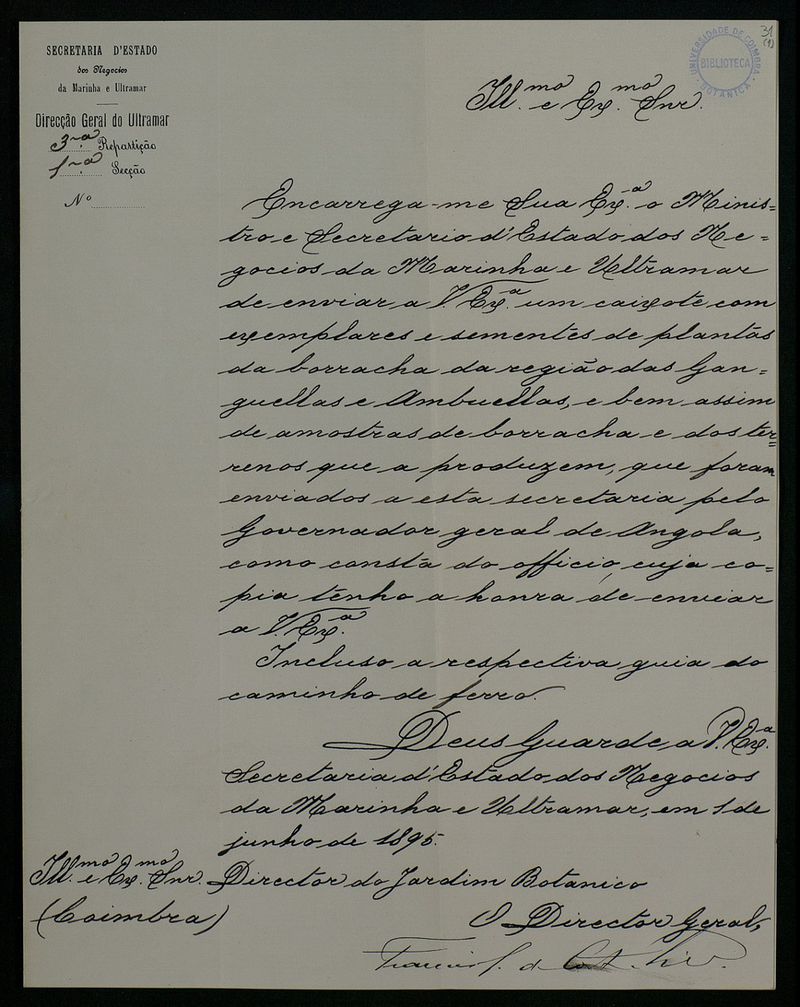 SECRETARIA D'ESTADO
dos Negocios
da Marinha e Ultramar
Direcção Geral do Ultramar
3.ª Repartição
1.ª Secção
Nº
UNIVERSIDADE DE COIMBRA
BIBLIOTECA
BOTANICA
31
(1)
Ill.mo e Ex.mo Snr.
Encarrega-me Sua Ex.ª o Minis=
tro e Secretario d'Estado dos Ne=
gocios da Marinha e Ultramar
de enviar a V. Ex.ª um caixote com
exemplares e sementes de plantas
da borracha da região das Gan=
guellas e Ambuellas, e bem assim
de amostras de borracha e dos ter=
renos que a produzem, que foram
enviados a esta secretaria pelo
Governador geral de Angola,
como consta do officio, cuja co=
pia tenho a honra de enviar
a V. Ex.ª
Incluso a respectiva guia do
caminho de ferro.
Deus Guarde, a V. Ex.ª
Secretaria d'Estado dos Negocios
da Marinha e Ultramar, em 1 de
junho de 1895.
Ill.mo e Ex.mo Snr. Director do Jardim Botanico
(Coimbra)
O Director Geral,